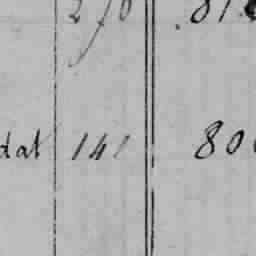 270 81
dat 141 80